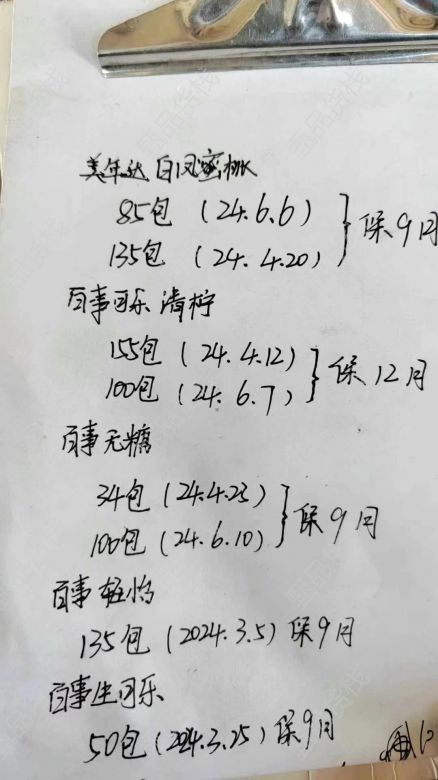 美年达 白风蜜桃
85包 (24.6.6)
135包 (24.4.20) } 保9月
百事可乐 清柠
155包 (24.4.12)
100包 (24.6.7) } 保12月
百事无糖
34包 (24.4.23)
100包 (24.6.10) } 保9月
百事轻怡
135包 (2024.3.5) 保9月
百事生可乐
50包 (2024.3.25) 保9月